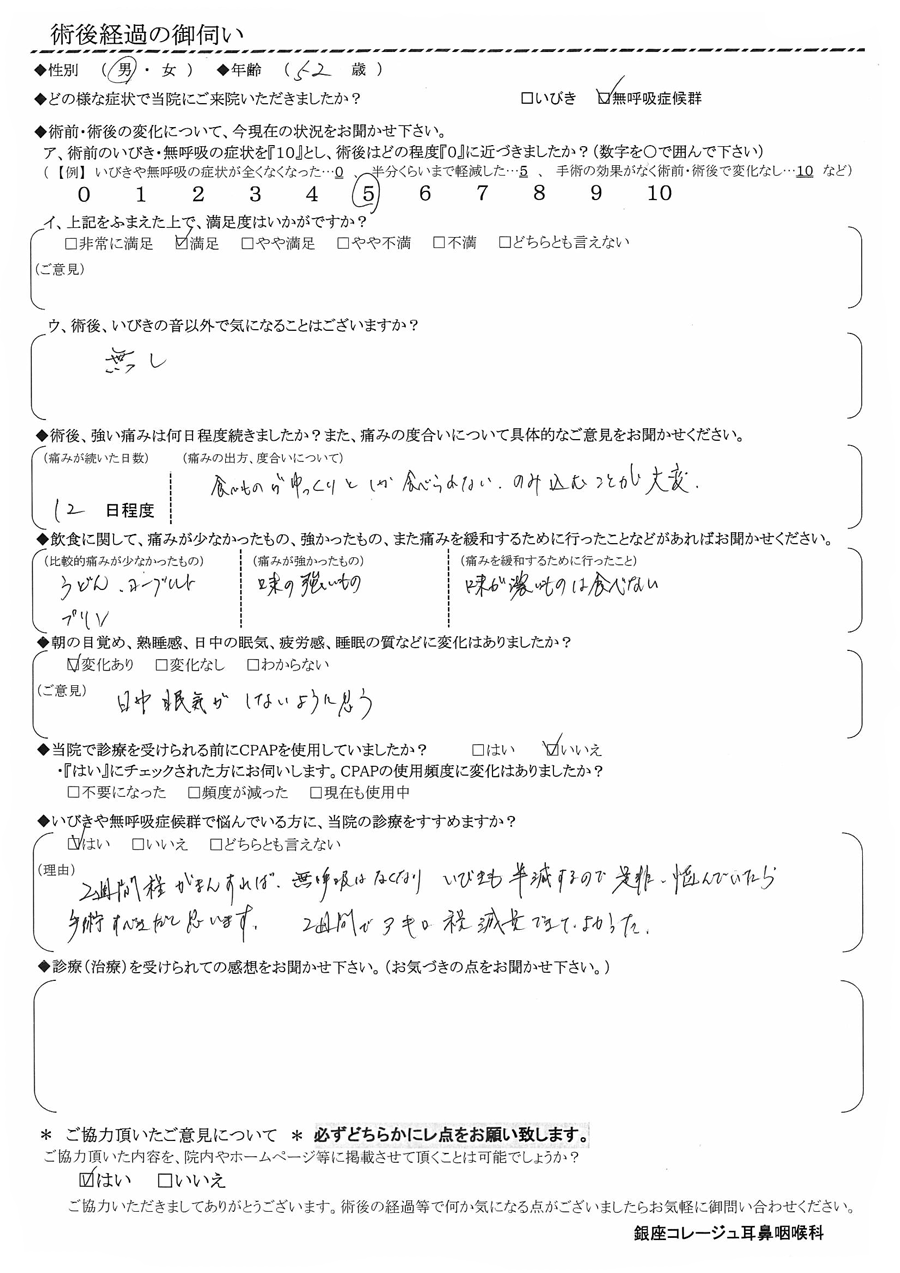 術後経過の御伺い
◆性別 (男・女) ◆年齢 (52 歳)
◆どの様な症状で当院にご来院いただきましたか? □いびき ☑無呼吸症候群
◆術前・術後の変化について、今現在の状況をお聞かせ下さい。
ア、術前のいびき・無呼吸の症状を『10』とし、術後はどの程度『0』に近づきましたか?(数字を○で囲んで下さい)
(【例】いびきや無呼吸の症状が全くなくなった…0 、半分くらいまで軽減した…5 、手術の効果がなく術前・術後で変化なし…10 など)
0 1 2 3 4 5 6 7 8 9 10
イ、上記をふまえた上で、満足度はいかがですか?
□非常に満足 ☑満足 □やや満足 □やや不満 □不満 □どちらとも言えない
(ご意見)
ウ、術後、いびきの音以外で気になることはございますか?
無し
◆術後、強い痛みは何日程度続きましたか?また、痛みの度合いについて具体的なご意見をお聞かせください。
(痛みが続いた日数) (痛みの出方、度合いについて)
食べものがゆっくりとしか食べられない。のみ込むことが大変。
12 日程度
◆飲食に関して、痛みが少なかったもの、強かったもの、また痛みを緩和するために行ったことなどがあればお聞かせください。
(比較的痛みが少なかったもの) (痛みが強かったもの) (痛みを緩和するために行ったこと)
うどん、ヨーグルト 味の強いもの 味が濃いものは食べない
プリン
◆朝の目覚め、熟睡感、日中の眠気、疲労感、睡眠の質などに変化はありましたか?
☑変化あり □変化なし □わからない
(ご意見)
日中眠気がしないように思う
◆当院で診療を受けられる前にCPAPを使用していましたか? □はい ☑いいえ
・『はい』にチェックされた方にお伺いします。CPAPの使用頻度に変化はありましたか?
□不要になった □頻度が減った □現在も使用中
◆いびきや無呼吸症候群で悩んでいる方に、当院の診療をすすめますか?
☑はい □いいえ □どちらとも言えない
(理由)
2週間程がまんすれば、無呼吸はなくなり いびきも半減するので是非、悩んでいたら
手術すべきだと思います。 2週間が3キロ程減量できてよかった。
◆診療(治療)を受けられての感想をお聞かせ下さい。(お気づきの点をお聞かせ下さい。)
＊ ご協力頂いたご意見について ＊ 必ずどちらかにレ点をお願い致します。
ご協力頂いた内容を、院内やホームページ等に掲載させて頂くことは可能でしょうか?
☑はい □いいえ
ご協力いただきましてありがとうございます。術後の経過等で何か気になる点がございましたらお気軽に御問い合わせください。
銀座コレージュ耳鼻咽喉科